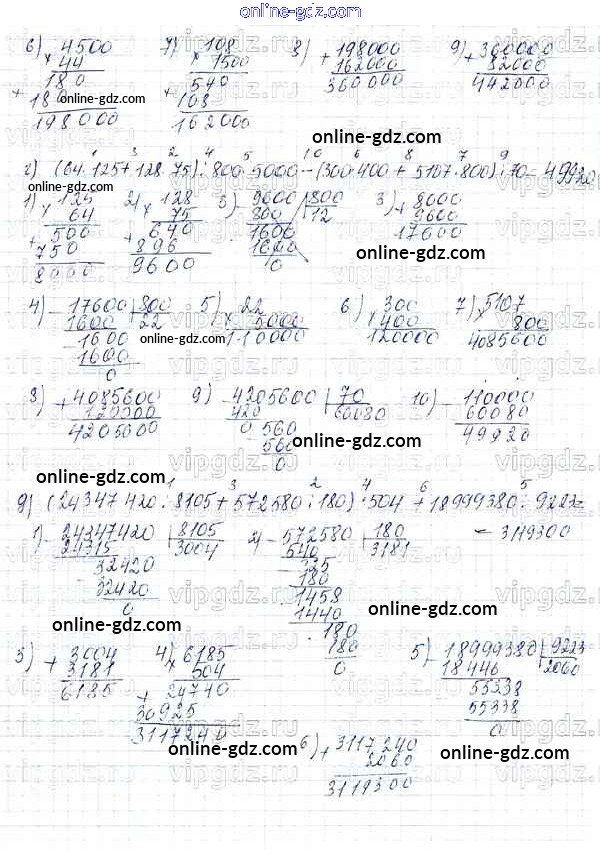 online-gdz.com
6) 4500 7) 108 8) + 198000 9) + 360000
× 44 × 1500 162000 82000
180 540 360000 442000
+ 18 + 108
198000 162000
online-gdz.com
online-gdz.com
г) (64·125+128·75):800·5000-(300·400+5107·800):70=49920
1) × 125 2) × 128 3) - 9600 800 3) + 8000
64 75 800 12 9600
+ 500 + 640 1600 17600
750 896 1600
8000 9600 0
online-gdz.com
4) - 17600 800 5) × 22 6) × 300 7) × 5107
1600 22 5000 400 800
- 1600 110000 120000 4085600
1600
0
online-gdz.com
8) + 4085600 9) - 4205600 70 10) - 110000
120000 420 60080 60080
4205600 0 560 49920
- 560
0
online-gdz.com
online-gdz.com
д) (24347420:8105+572580:180)·504+18999380:9223=
=3119300
1) - 24347420 8105 2) - 572580 180
24315 3004 540 3181
- 32420 - 325
32420 180
0 - 1458
1440
- 180
180
0
online-gdz.com
3) + 3004 4) × 6185 5) - 18999380 9223
3181 504 18446 2060
6185 + 24740 - 55338
30925 55338
3117240 0
online-gdz.com
6) + 3117240
2060
3119300
online-gdz.com